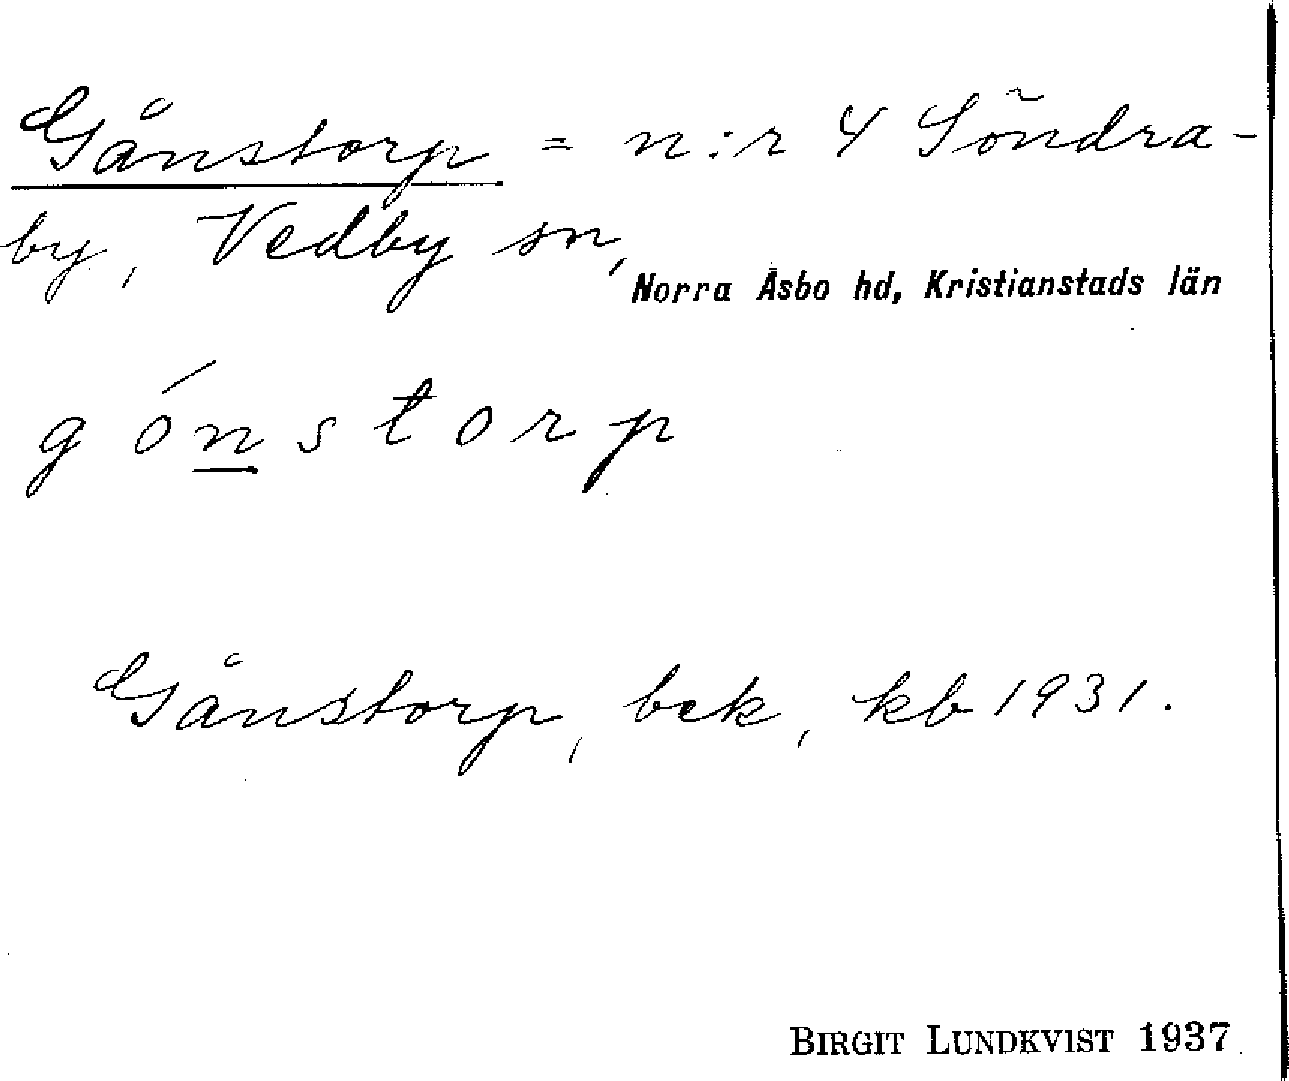 Gånstorp = n:r 4 Söndra-
by, Vedby sn,
Norra Åsbo hd, Kristianstads län
gónstorp
Gånstorp, bek, kb 1931.
BIRGIT LUNDKVIST 1937